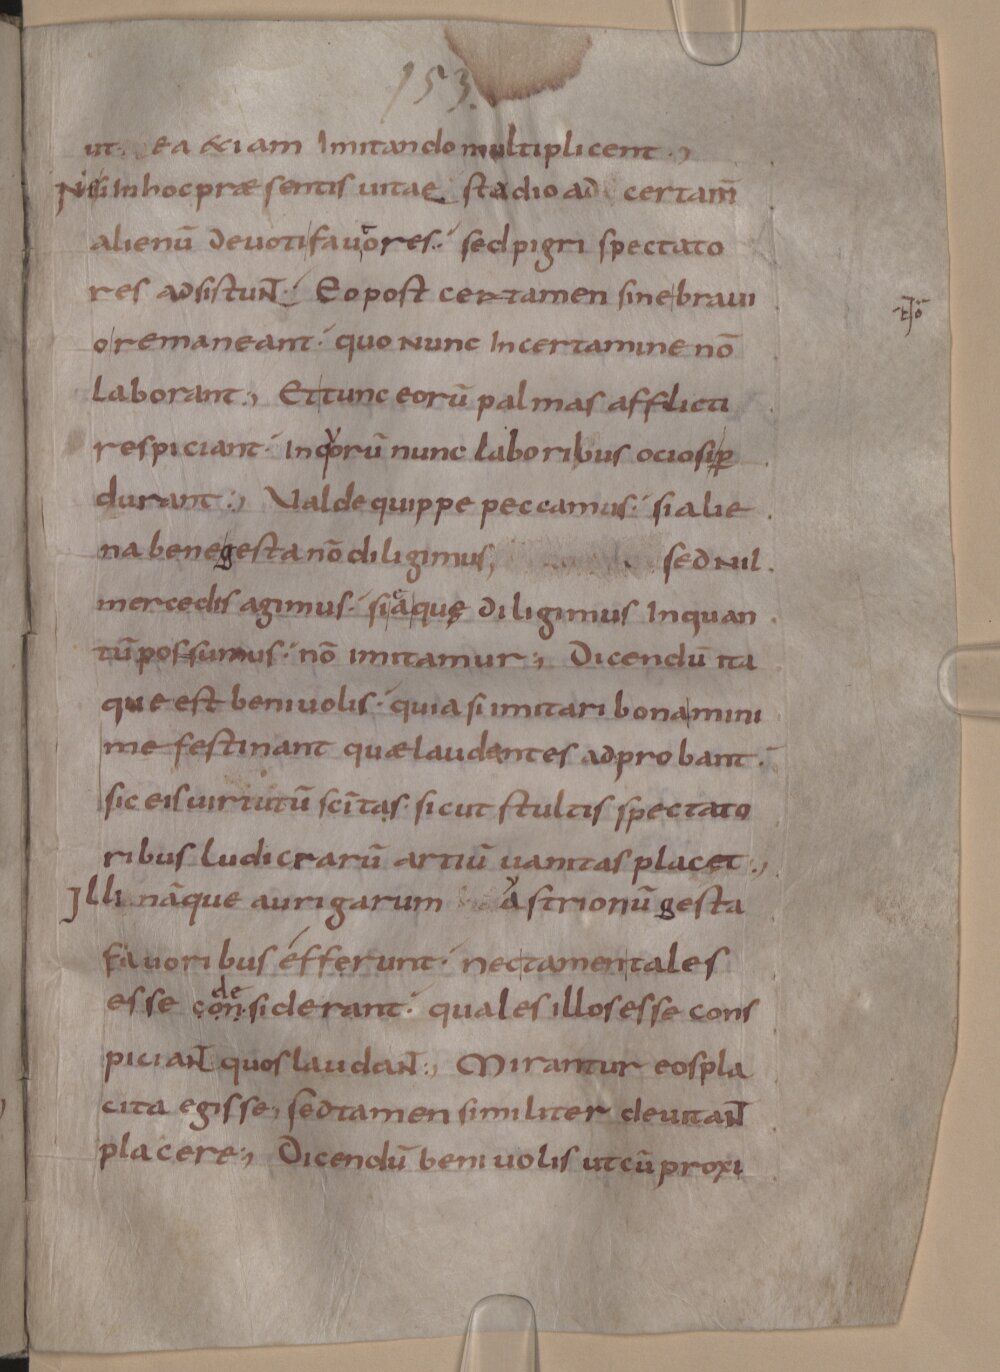 153.
ut ea &iam Imitando multiplicent.,
Nisi In hoc præsentis uitae stadio ad certam̄
alienū deuoti fauores. sed pigri spectato
res adsistunt̄. Eo post certamen sine braui
o remaneant. quo nunc In certamine nō
laborant., Et tunc eorū palmas afflicti
respiciant. In quorū nunc laboribus ociosi p̲
durant., Valde quippe peccamus. si alie
na bene gesta nō diligimus, sed nil
mercedis agimus. si ea quę diligimus Inquan
tū possumus. nō imitamur., Dicendū ita
que est beniuolis. quia si imitari bona mini
me festinant quæ laudantes adprobant.
sic eis uirtutū sc̄itas. sicut stultis spectato
ribus ludicrarū artiū uanitas placet.,
Illi nāque aurigarum astrionū gesta
fauoribus efferunt. nec tamen tales
esse considerant. quales illos esse cons
de
piciant̄ quos laudant̄., Mirantur eos pla
cita egisse, sed tamen similiter deuitant̄
placere., Dicendū beniuolis ut cū proxi